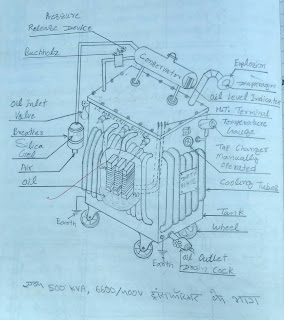 Pressure
Release Device
Buchholz
Conservator
Explosion
Diaphragm
Oil Level Indicator
H.T. Terminal
Temperature
Gauge
Oil Inlet
Valve
Breather
Silica
Gel
Air
Oil
Tap Changer
Manually
Operated
Cooling Tubes
Tank
Wheel
Earth
Earth
Oil Outlet
Drain Cock
500 KVA, 6600/400V